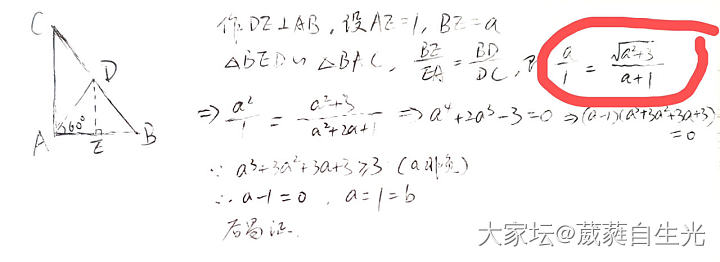 C
D
60°
A
E
B
作DE⊥AB，设AE=1，BE=a
△BED∽△BAC，BE/EA=BD/DC，即 a/1=√(a²+3)/(a+1)
⇒a²/1=(a²+3)/(a²+2a+1)⇒a⁴+2a³-3=0⇒(a-1)(a³+3a²+3a+3)
=0
∵a³+3a²+3a+3≥3（a非负）
∴a-1=0，a=1=b
后易证.
大家坛@葳蕤自生光